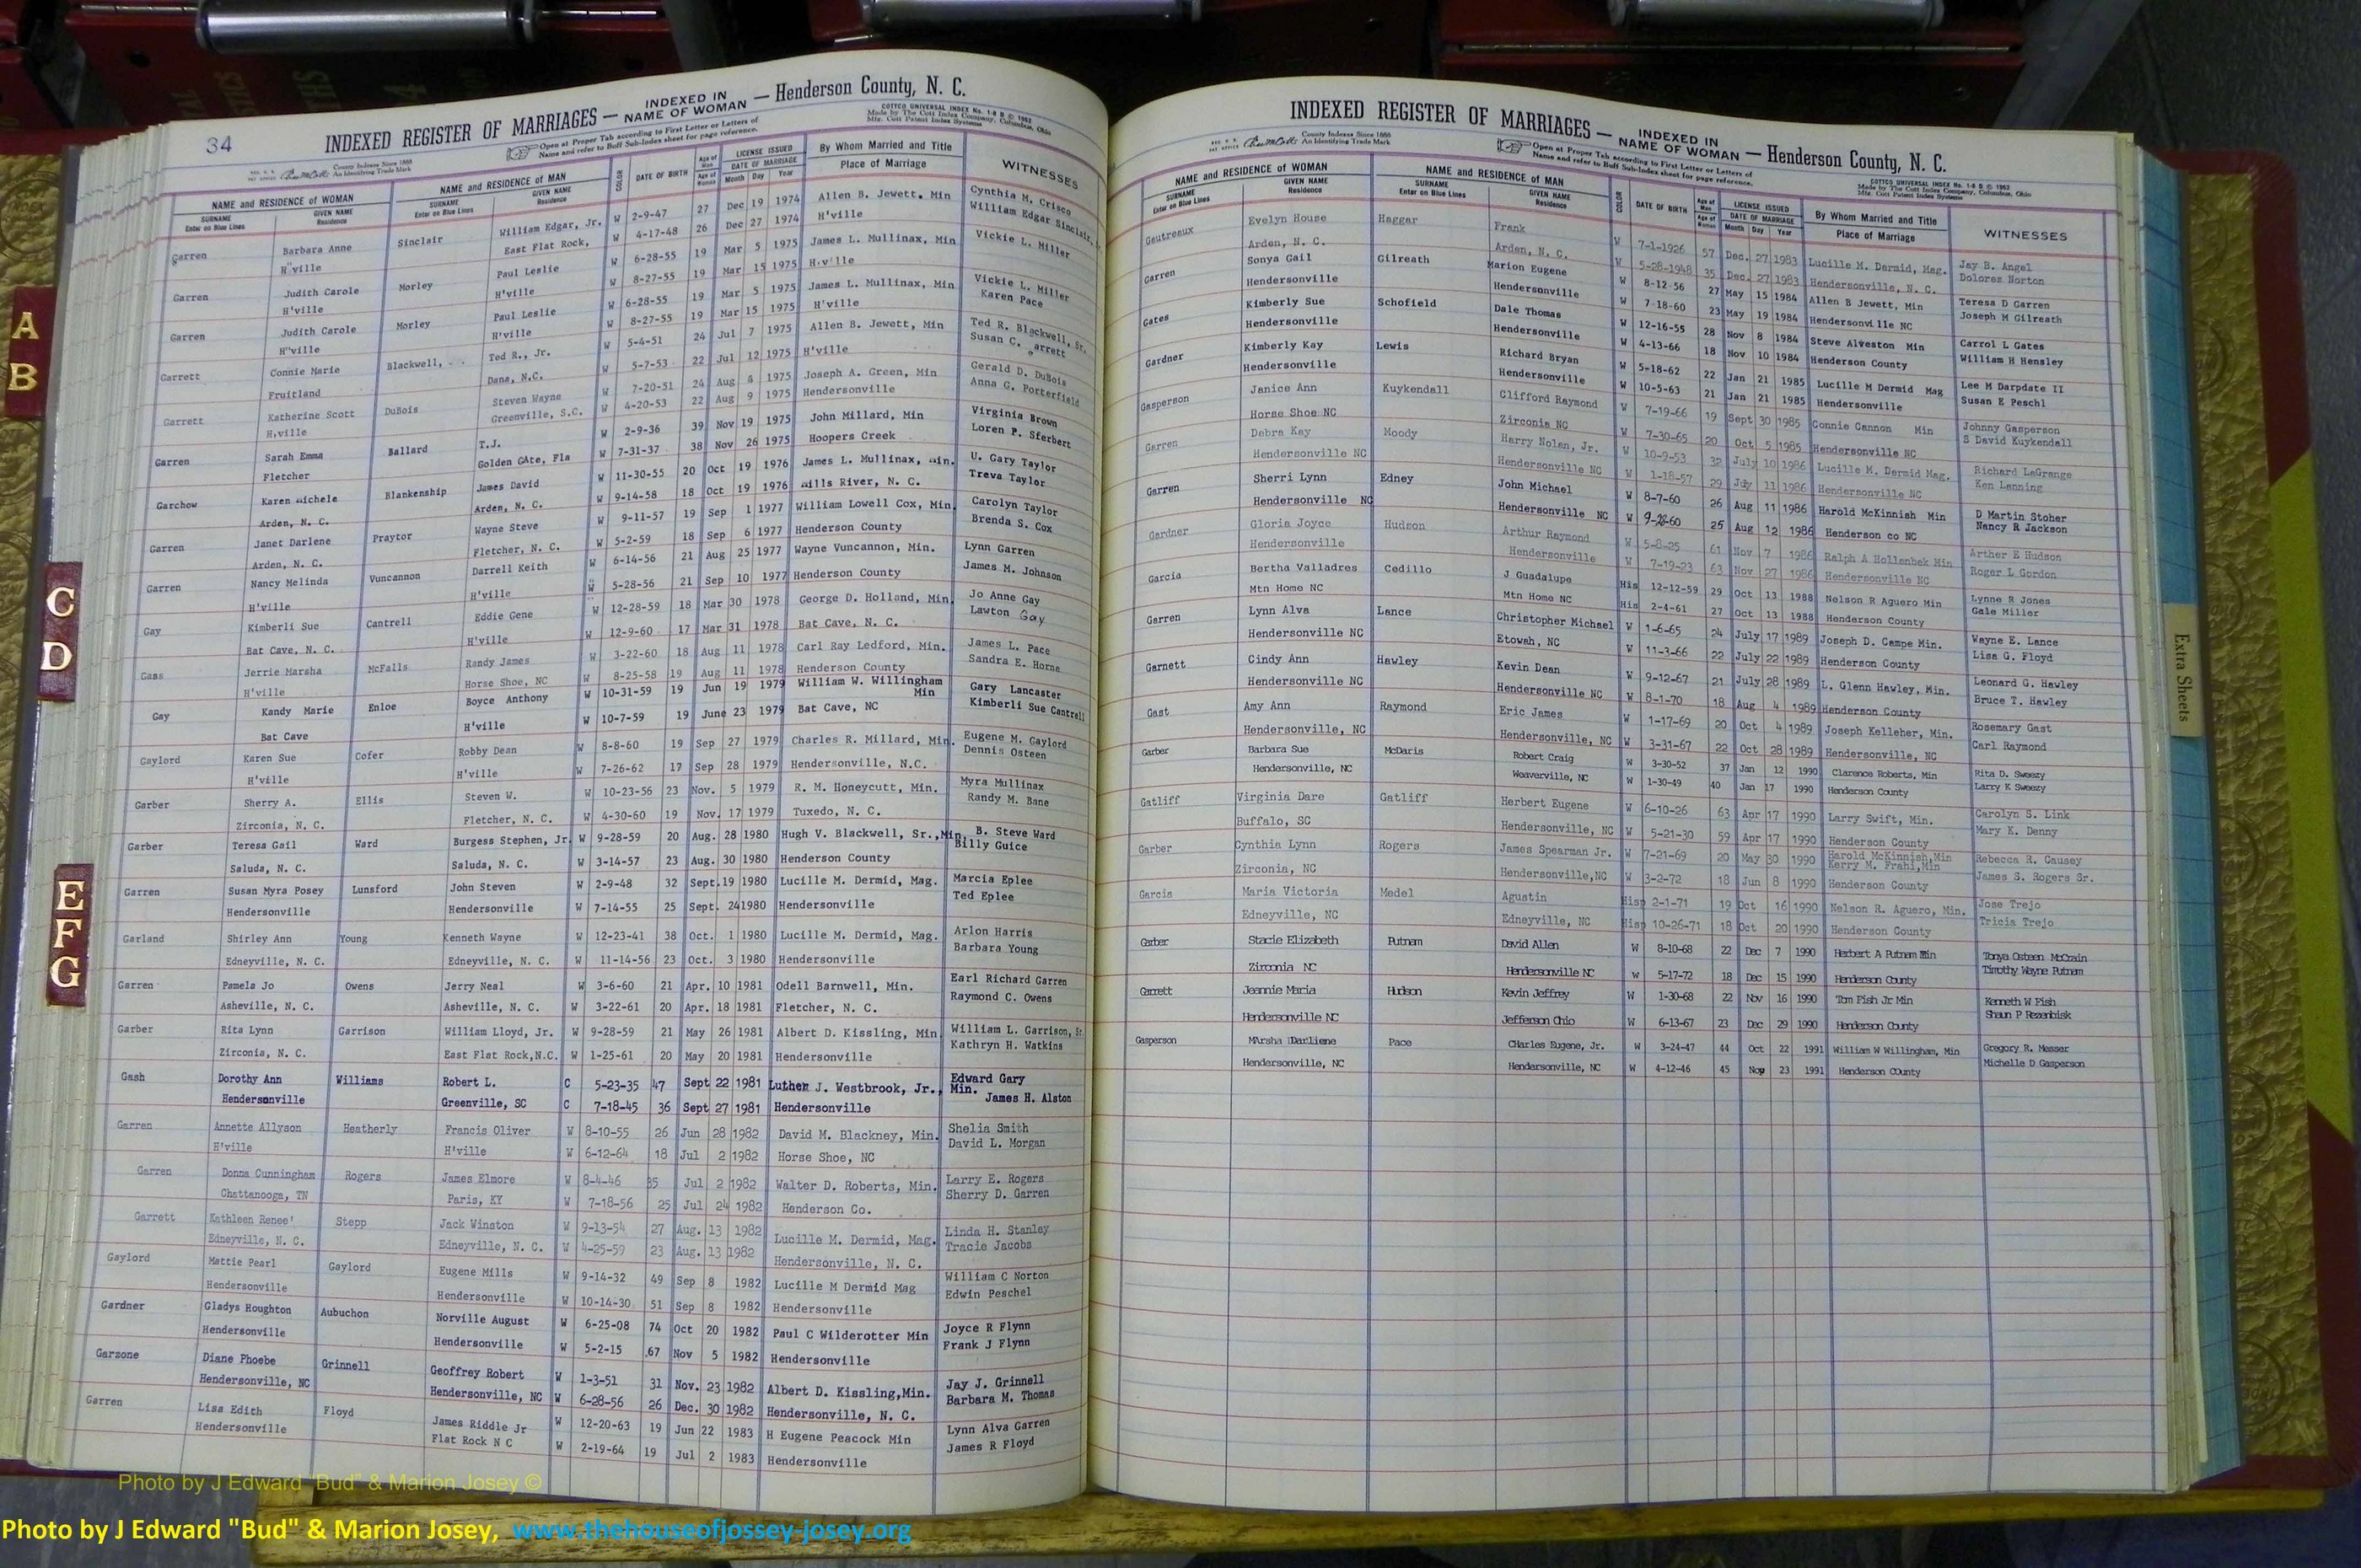 34
INDEXED REGISTER OF MARRIAGES — INDEXED IN NAME OF WOMAN — Henderson County, N. C.
Open at Proper Tab according to First Letter or Letters of
Name and refer to Buff Sub-Index sheet for page reference.
COTTCO UNIVERSAL INDEX No. 1-8 B © 1962
Made by The Cott Index Company, Columbus, Ohio
Mfr. Cott Patent Index Systems
County Indexes Since 1888
An Identifying Trade Mark
NAME and RESIDENCE OF WOMAN NAME and RESIDENCE OF MAN COLOR DATE OF BIRTH Age of Man LICENSE ISSUED By Whom Married and Title WITNESSES
SURNAME Enter on Blue Lines GIVEN NAME Residence SURNAME Enter on Blue Lines GIVEN NAME Residence Age of Woman DATE OF MARRIAGE Month Day Year Place of Marriage
Garren Barbara Anne Sinclair William Edgar, Jr. W 2-9-47 27 Dec 19 1974 Allen B. Jewett, Min Cynthia M. Crisco
H"ville East Flat Rock, W 4-17-48 26 Dec 27 1974 H'ville William Edgar Sinclair,
Garren Judith Carole Morley Paul Leslie W 6-28-55 19 Mar 5 1975 James L. Mullinax, Min Vickie L. Miller
H'ville H'ville W 8-27-55 19 Mar 15 1975 H.v'lle
Garren Judith Carole Morley Paul Leslie W 6-28-55 19 Mar 5 1975 James L. Mullinax, Min Vickie L. Miller
H"ville H'ville W 8-27-55 19 Mar 15 1975 H'ville Karen Pace
Garrett Connie Marie Blackwell, Ted R., Jr. W 5-4-51 24 Jul 7 1975 Allen B. Jewett, Min Ted R. Blackwell, Sr.
Fruitland Dana, N.C. W 5-7-53 22 Jul 12 1975 H'ville Susan C. arrett
Garrett Katherine Scott DuBois Steven Wayne W 7-20-51 24 Aug 6 1975 Joseph A. Green, Min Gerald D. DuBois
H.ville Greenville, S.C. W 4-20-53 22 Aug 9 1975 Hendersonville Anna G. Porterfield
Garren Sarah Emma Ballard T.J. W 2-9-36 39 Nov 19 1975 John Millard, Min Virginia Brown
Fletcher Golden GAte, Fla W 7-31-37 38 Nov 26 1975 Hoopers Creek Loren P. Sferbert
Garchow Karen michele Blankenship James David W 11-30-55 20 Oct 19 1976 James L. Mullinax, min. U. Gary Taylor
Arden, N. C. Arden, N. C. W 9-14-58 18 Oct 19 1976 mills River, N. C. Treva Taylor
Garren Janet Darlene Praytor Wayne Steve W 9-11-57 19 Sep 1 1977 William Lowell Cox, Min. Carolyn Taylor
Arden, N. C. Fletcher, N. C. W 5-2-59 18 Sep 6 1977 Henderson County Brenda S. Cox
Garren Nancy Melinda Vuncannon Darrell Keith W 6-14-56 21 Aug 25 1977 Wayne Vuncannon, Min. Lynn Garren
H'ville H'ville W 5-28-56 21 Sep 10 1977 Henderson County James M. Johnson
Gay Kimberli Sue Cantrell Eddie Gene W 12-28-59 18 Mar 30 1978 George D. Holland, Min. Jo Anne Gay
Bat Cave, N. C. H'ville W 12-9-60 17 Mar 31 1978 Bat Cave, N. C. Lawton Gay
Gass Jerrie Marsha McFalls Randy James W 3-22-60 18 Aug 11 1978 Carl Ray Ledford, Min. James L. Pace
H'ville Horse Shoe, NC W 8-25-58 19 Aug 11 1978 Henderson County Sandra E. Horne
Gay Kandy Marie Enloe Boyce Anthony W 10-31-59 19 Jun 19 1979 William W. Willingham Min Gary Lancaster
Bat Cave H'ville W 10-7-59 19 June 23 1979 Bat Cave, NC Kimberli Sue Cantrell
Gaylord Karen Sue Cofer Robby Dean W 8-8-60 19 Sep 27 1979 Charles R. Millard, Min. Eugene M. Gaylord
H'ville H'ville W 7-26-62 17 Sep 28 1979 Hendersonville, N.C. Dennis Osteen
Garber Sherry A. Ellis Steven W. W 10-23-56 23 Nov. 5 1979 R. M. Honeycutt, Min. Myra Mullinax
Zirconia, N. C. Fletcher, N. C. W 4-30-60 19 Nov. 17 1979 Tuxedo, N. C. Randy M. Bane
Garber Teresa Gail Ward Burgess Stephen, Jr. W 9-28-59 20 Aug. 28 1980 Hugh V. Blackwell, Sr.,Min. B. Steve Ward
Saluda, N. C. Saluda, N. C. W 3-14-57 23 Aug. 30 1980 Henderson County Billy Guice
Garren Susan Myra Posey Lunsford John Steven W 2-9-48 32 Sept. 19 1980 Lucille M. Dermid, Mag. Marcia Eplee
Hendersonville Hendersonville W 7-14-55 25 Sept. 24 1980 Hendersonville Ted Eplee
Garland Shirley Ann Young Kenneth Wayne W 12-23-41 38 Oct. 1 1980 Lucille M. Dermid, Mag. Arlon Harris
Edneyville, N. C. Edneyville, N. C. W 11-14-56 23 Oct. 3 1980 Hendersonville Barbara Young
Garren Pamela Jo Owens Jerry Neal W 3-6-60 21 Apr. 10 1981 Odell Barnwell, Min. Earl Richard Garren
Asheville, N. C. Asheville, N. C. W 3-22-61 20 Apr. 18 1981 Fletcher, N. C. Raymond C. Owens
Garber Rita Lynn Garrison William Lloyd, Jr. W 9-28-59 21 May 26 1981 Albert D. Kissling, Min. William L. Garrison, Sr.
Zirconia, N. C. East Flat Rock,N.C. W 1-25-61 20 May 20 1981 Hendersonville Kathryn H. Watkins
Gash Dorothy Ann Williams Robert L. C 5-23-35 47 Sept 22 1981 Luther J. Westbrook, Jr., Min. Edward Gary
Hendersonville Greenville, SC C 7-18-45 36 Sept 27 1981 Hendersonville James H. Alston
Garren Annette Allyson Heatherly Francis Oliver W 8-10-55 26 Jun 28 1982 David M. Blackney, Min. Shelia Smith
H'ville H'ville W 6-12-64 18 Jul 2 1982 Horse Shoe, NC David L. Morgan
Garren Donna Cunningham Rogers James Elmore W 8-4-46 35 Jul 2 1982 Walter D. Roberts, Min. Larry E. Rogers
Chattanooga, TN Paris, KY W 7-18-56 25 Jul 24 1982 Henderson Co. Sherry D. Garren
Garrett Kathleen Renee' Stepp Jack Winston W 9-13-54 27 Aug. 13 1982 Lucille M. Dermid, Mag. Linda H. Stanley
Edneyville, N. C. Edneyville, N. C. W 4-25-59 23 Aug. 13 1982 Hendersonville, N. C. Tracie Jacobs
Gaylord Mattie Pearl Gaylord Eugene Mills W 9-14-32 49 Sep 8 1982 Lucille M Dermid Mag William C Norton
Hendersonville Hendersonville W 10-14-30 51 Sep 8 1982 Hendersonville Edwin Peschel
Gardner Gladys Houghton Aubuchon Norville August W 6-25-08 74 Oct 20 1982 Paul C Wilderotter Min Joyce R Flynn
Hendersonville Hendersonville W 5-2-15 67 Nov 5 1982 Hendersonville Frank J Flynn
Garzone Diane Phoebe Grinnell Geoffrey Robert W 1-3-51 31 Nov. 23 1982 Albert D. Kissling,Min. Jay J. Grinnell
Hendersonville, NC Hendersonville, NC W 6-28-56 26 Dec. 30 1982 Hendersonville, N. C. Barbara M. Thomas
Garren Lisa Edith Floyd James Riddle Jr W 12-20-63 19 Jun 22 1983 H Eugene Peacock Min Lynn Alva Garren
Hendersonville Flat Rock N C W 2-19-64 19 Jul 2 1983 Hendersonville James R Floyd
INDEXED REGISTER OF MARRIAGES — INDEXED IN NAME OF WOMAN — Henderson County, N. C.
County Indexes Since 1888
An Identifying Trade Mark
Open at Proper Tab according to First Letter or Letters of
Name and refer to Buff Sub-Index sheet for page reference.
COTTCO UNIVERSAL INDEX No. 1-8 B © 1962
Made by The Cott Index Company, Columbus, Ohio
Mfr. Cott Patent Index Systems
NAME and RESIDENCE OF WOMAN NAME and RESIDENCE OF MAN COLOR DATE OF BIRTH Age of Man LICENSE ISSUED By Whom Married and Title WITNESSES
SURNAME Enter on Blue Lines GIVEN NAME Residence SURNAME Enter on Blue Lines GIVEN NAME Residence Age of Woman DATE OF MARRIAGE Month Day Year Place of Marriage
Gautreaux Evelyn House Haggar Frank W 7-1-1926 57 Dec. 27 1983 Lucille M. Dermid, Mag. Jay B. Angel
Arden, N. C. Arden, N. C. W 5-28-1948 35 Dec. 27 1983 Hendersonville, N. C. Dolores Norton
Garren Sonya Gail Gilreath Marion Eugene W 8-12-56 27 May 15 1984 Allen B Jewett, Min Teresa D Garren
Hendersonville Hendersonville W 7-18-60 23 May 19 1984 Hendersonville NC Joseph M Gilreath
Gates Kimberly Sue Schofield Dale Thomas W 12-16-55 28 Nov 8 1984 Steve Alveston Min Carrol L Gates
Hendersonville Hendersonville W 4-13-66 18 Nov 10 1984 Henderson County William H Hensley
Gardner Kimberly Kay Lewis Richard Bryan W 5-18-62 22 Jan 21 1985 Lucille M Dermid Mag Lee M Darpdate II
Hendersonville Hendersonville W 10-5-63 21 Jan 21 1985 Hendersonville Susan E Peschl
Gasperson Janice Ann Kuykendall Clifford Raymond W 7-19-66 19 Sept 30 1985 Connie Cannon Min Johnny Gasperson
Horse Shoe NC Zirconia NC W 7-30-65 20 Oct 5 1985 Hendersonville NC S David Kuykendall
Garren Debra Kay Moody Harry Nolan, Jr. W 10-9-53 32 July 10 1986 Lucille M. Dermid Mag. Richard LaGrange
Hendersonville NC Hendersonville NC W 1-18-57 29 July 11 1986 Hendersonville NC Ken Lanning
Garren Sherri Lynn Edney John Michael W 8-7-60 26 Aug 11 1986 Harold McKinnish Min D Martin Stoher
Hendersonville NC Hendersonville NC W 9-28-60 25 Aug 12 1986 Henderson co NC Nancy R Jackson
Gardner Gloria Joyce Hudson Arthur Raymond W 5-8-25 61 Nov 7 1986 Ralph A Hollenbek Min Arther E Hudson
Hendersonville Hendersonville W 7-19-23 63 Nov 27 1986 Hendersonville NC Roger L Gordon
Garcia Bertha Valladres Cedillo J Guadalupe His 12-12-59 29 Oct 13 1988 Nelson R Aguero Min Lynne R Jones
Mtn Home NC Mtn Home NC His 2-4-61 27 Oct 13 1988 Henderson County Gale Miller
Garren Lynn Alva Lance Christopher Michael W 1-6-65 24 July 17 1989 Joseph D. Campe Min. Wayne E. Lance
Hendersonville NC Etowah, NC W 11-3-66 22 July 22 1989 Henderson County Lisa G. Floyd
Garnett Cindy Ann Hawley Kevin Dean W 9-12-67 21 July 28 1989 L. Glenn Hawley, Min. Leonard G. Hawley
Hendersonville NC Hendersonville NC W 8-1-70 18 Aug 4 1989 Henderson County Bruce T. Hawley
Gast Amy Ann Raymond Eric James W 1-17-69 20 Oct 4 1989 Joseph Kelleher, Min. Rosemary Gast
Hendersonville, NC Hendersonville, NC W 3-31-67 22 Oct 28 1989 Hendersonville, NC Carl Raymond
Garber Barbara Sue McDaris Robert Craig W 3-30-52 37 Jan 12 1990 Clarence Roberts, Min Rita D. Sweezy
Hendersonville, NC Weaverville, NC W 1-30-49 40 Jan 17 1990 Henderson County Larry K Sweezy
Gatliff Virginia Dare Gatliff Herbert Eugene W 6-10-26 63 Apr 17 1990 Larry Swift, Min. Carolyn S. Link
Buffalo, SC Hendersonville, NC W 5-21-30 59 Apr 17 1990 Henderson County Mary K. Denny
Garber Cynthia Lynn Rogers James Spearman Jr. W 7-21-69 20 May 30 1990 Harold McKinnish,Min Kerry M. Frahi,Min Rebecca R. Causey
Zirconia, NC Hendersonville,NC W 3-2-72 18 Jun 8 1990 Henderson County James S. Rogers Sr.
Garcia Maria Victoria Medel Agustin Hisp 2-1-71 19 Oct 16 1990 Nelson R. Aguero, Min. Jose Trejo
Edneyville, NC Edneyville, NC Hisp 10-26-71 18 Oct 20 1990 Henderson County Tricia Trejo
Garber Stacie Elizabeth Putnam David Allen W 8-10-68 22 Dec 7 1990 Herbert A Putnam Min Tonya Osteen McCrain
Zirconia NC Hendersonville NC W 5-17-72 18 Dec 15 1990 Henderson County Timothy Wayne Putnam
Garrett Jeannie Maria Hudson Kevin Jeffrey W 1-30-68 22 Nov 16 1990 Tom Fish Jr Min Kenneth W Fish
Hendersonville NC Jefferson Ohio W 6-13-67 23 Dec 29 1990 Henderson County Shaun P Rezenbisk
Gasperson MArsha Darliene Pace CHarles Eugene, Jr. W 3-24-47 44 Oct 22 1991 William W Willingham, Min Gregory R. Messer
Hendersonville, NC Hendersonville, NC W 4-12-46 45 Nov 23 1991 Henderson COunty Michelle D Gasperson
A
B
C
D
E
F
G
Extra Sheets
Photo by J Edward "Bud" & Marion Josey ©
Photo by J Edward "Bud" & Marion Josey, www.thehouseofjossey-josey.org